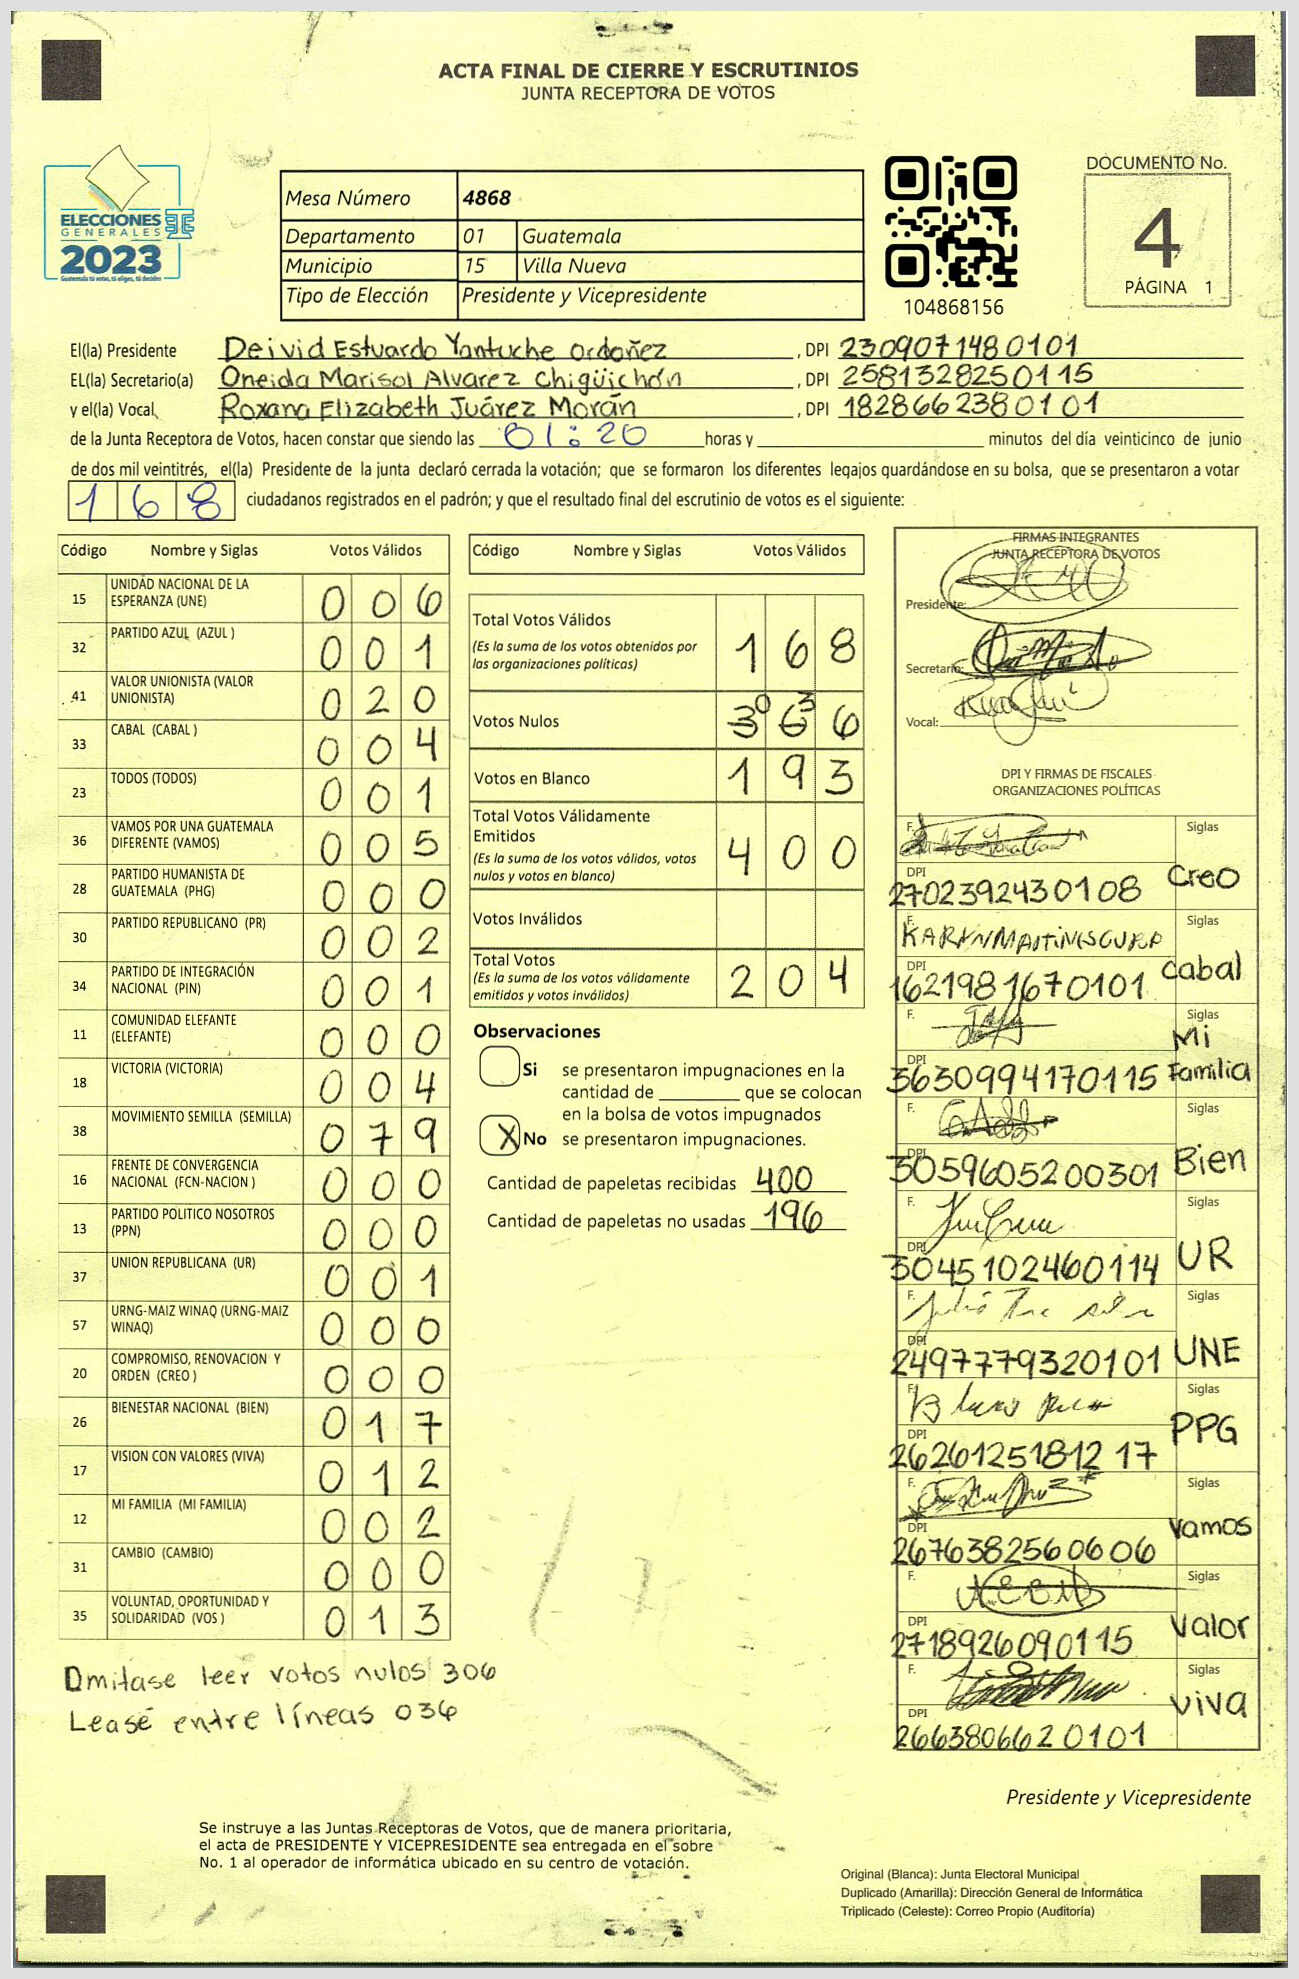 ACTA FINAL DE CIERRE Y ESCRUTINIOS
JUNTA RECEPTORA DE VOTOS
ELECCIONES
GENERALES
2023
Guatemala tú votas, tú eliges, tú decides
Mesa Número 4868
Departamento 01 Guatemala
Municipio 15 Villa Nueva
Tipo de Elección Presidente y Vicepresidente
104868156
DOCUMENTO No.
4
PÁGINA 1
El(la) Presidente Deivid Estuardo Yantuche Ordoñez, DPI 2309071480101
EL(la) Secretario(a) Oneida Marisol Alvarez Chigüichón, DPI 2581328250115
y el(la) Vocal, Roxana Elizabeth Juárez Morán, DPI 1828662380101
de la Junta Receptora de Votos, hacen constar que siendo las 01:20 horas y minutos del día veinticinco de junio
de dos mil veintitrés, el(la) Presidente de la junta declaró cerrada la votación; que se formaron los diferentes legajos guardándose en su bolsa, que se presentaron a votar
168 ciudadanos registrados en el padrón; y que el resultado final del escrutinio de votos es el siguiente:
Código Nombre y Siglas Votos Válidos
15 UNIDAD NACIONAL DE LA ESPERANZA (UNE) 006
32 PARTIDO AZUL (AZUL ) 001
41 VALOR UNIONISTA (VALOR UNIONISTA) 020
33 CABAL (CABAL ) 004
23 TODOS (TODOS) 001
36 VAMOS POR UNA GUATEMALA DIFERENTE (VAMOS) 005
28 PARTIDO HUMANISTA DE GUATEMALA (PHG) 000
30 PARTIDO REPUBLICANO (PR) 002
34 PARTIDO DE INTEGRACIÓN NACIONAL (PIN) 001
11 COMUNIDAD ELEFANTE (ELEFANTE) 000
18 VICTORIA (VICTORIA) 004
38 MOVIMIENTO SEMILLA (SEMILLA) 079
16 FRENTE DE CONVERGENCIA NACIONAL (FCN-NACION ) 000
13 PARTIDO POLITICO NOSOTROS (PPN) 000
37 UNION REPUBLICANA (UR) 001
57 URNG-MAIZ WINAQ (URNG-MAIZ WINAQ) 000
20 COMPROMISO, RENOVACION Y ORDEN (CREO ) 000
26 BIENESTAR NACIONAL (BIEN) 017
17 VISION CON VALORES (VIVA) 012
12 MI FAMILIA (MI FAMILIA) 002
31 CAMBIO (CAMBIO) 000
35 VOLUNTAD, OPORTUNIDAD Y SOLIDARIDAD (VOS ) 013
Omitase leer votos nulos 306
Leasé entre líneas 036
Código Nombre y Siglas Votos Válidos
Total Votos Válidos 168
(Es la suma de los votos obtenidos por
las organizaciones políticas)
Votos Nulos 036
Votos en Blanco 193
Total Votos Válidamente
Emitidos 400
(Es la suma de los votos válidos, votos
nulos y votos en blanco)
Votos Inválidos
Total Votos 204
(Es la suma de los votos válidamente
emitidos y votos inválidos)
Observaciones
Si se presentaron impugnaciones en la
cantidad de que se colocan
en la bolsa de votos impugnados
X No se presentaron impugnaciones.
Cantidad de papeletas recibidas 400
Cantidad de papeletas no usadas 196
FIRMAS INTEGRANTES
JUNTA RECEPTORA DE VOTOS
Presidente:
Secretario:
Vocal:
DPI Y FIRMAS DE FISCALES
ORGANIZACIONES POLÍTICAS
F. Siglas
DPI 2702392430108 Creo
F. Siglas
DPI 1621981670101 cabal
F. Siglas
DPI 3630994170115 Mi Familia
F. Siglas
DPI 3059605200301 Bien
F. Siglas
DPI 3045102460114 UR
F. Siglas
DPI 2497779320101 UNE
F. Siglas
DPI 2626125181217 PPG
F. Siglas
DPI 2676382560606 Vamos
F. Siglas
DPI 2718926090115 Valor
F. Siglas
DPI 2663806620101 viva
Presidente y Vicepresidente
Se instruye a las Juntas Receptoras de Votos, que de manera prioritaria,
el acta de PRESIDENTE Y VICEPRESIDENTE sea entregada en el sobre
No. 1 al operador de informática ubicado en su centro de votación.
Original (Blanca): Junta Electoral Municipal
Duplicado (Amarilla): Dirección General de Informática
Triplicado (Celeste): Correo Propio (Auditoría)